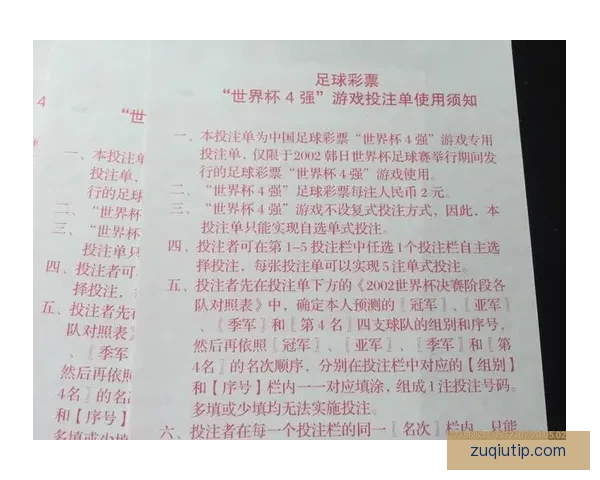 足球彩票
“世界杯 4 强”游戏投注单使用须知
一、本投注单为中国足球彩票“世界杯 4 强”游戏专用
投注单，仅限于2002 韩日世界杯足球赛举行期间发
行的足球彩票“世界杯 4 强”游戏使用。
二、“世界杯 4 强”足球彩票每注人民币 2 元。
三、“世界杯 4 强”游戏不设复式投注方式，因此，本
投注单只能实现自选单式投注。
四、投注者可在第 1-5 投注栏中任选 1个投注栏自主选
择投注，每张投注单可以实现 5 注单式投注。
五、投注者先在投注单下方的《2002世界杯决赛阶段各
队对照表》中，确定本人预测的〖冠军〗、〖亚军〗
、〖季军〗和〖第 4 名〗四支球队的组别和序号，
然后再依照〖冠军〗、〖亚军〗、〖季军〗和〖第
4名〗的名次顺序，分别在投注栏中对应的【组别】
和【序号】栏内一一对应填涂，组成 1 注投注号码。
多填或少填均无法实施投注。
六、投注者在每一个投注栏的同一〖名次〗栏内，只能
4
“世
一、本投注单
投注单，
行的足球
二、“世界杯
三、“世界杯
投注单只
四、投注者可
择投注，
五、投注者先在
队对照表》
、〖季军
然后再依照
4名〗的名
和【序号】
多填或少填
zuqiutip.com